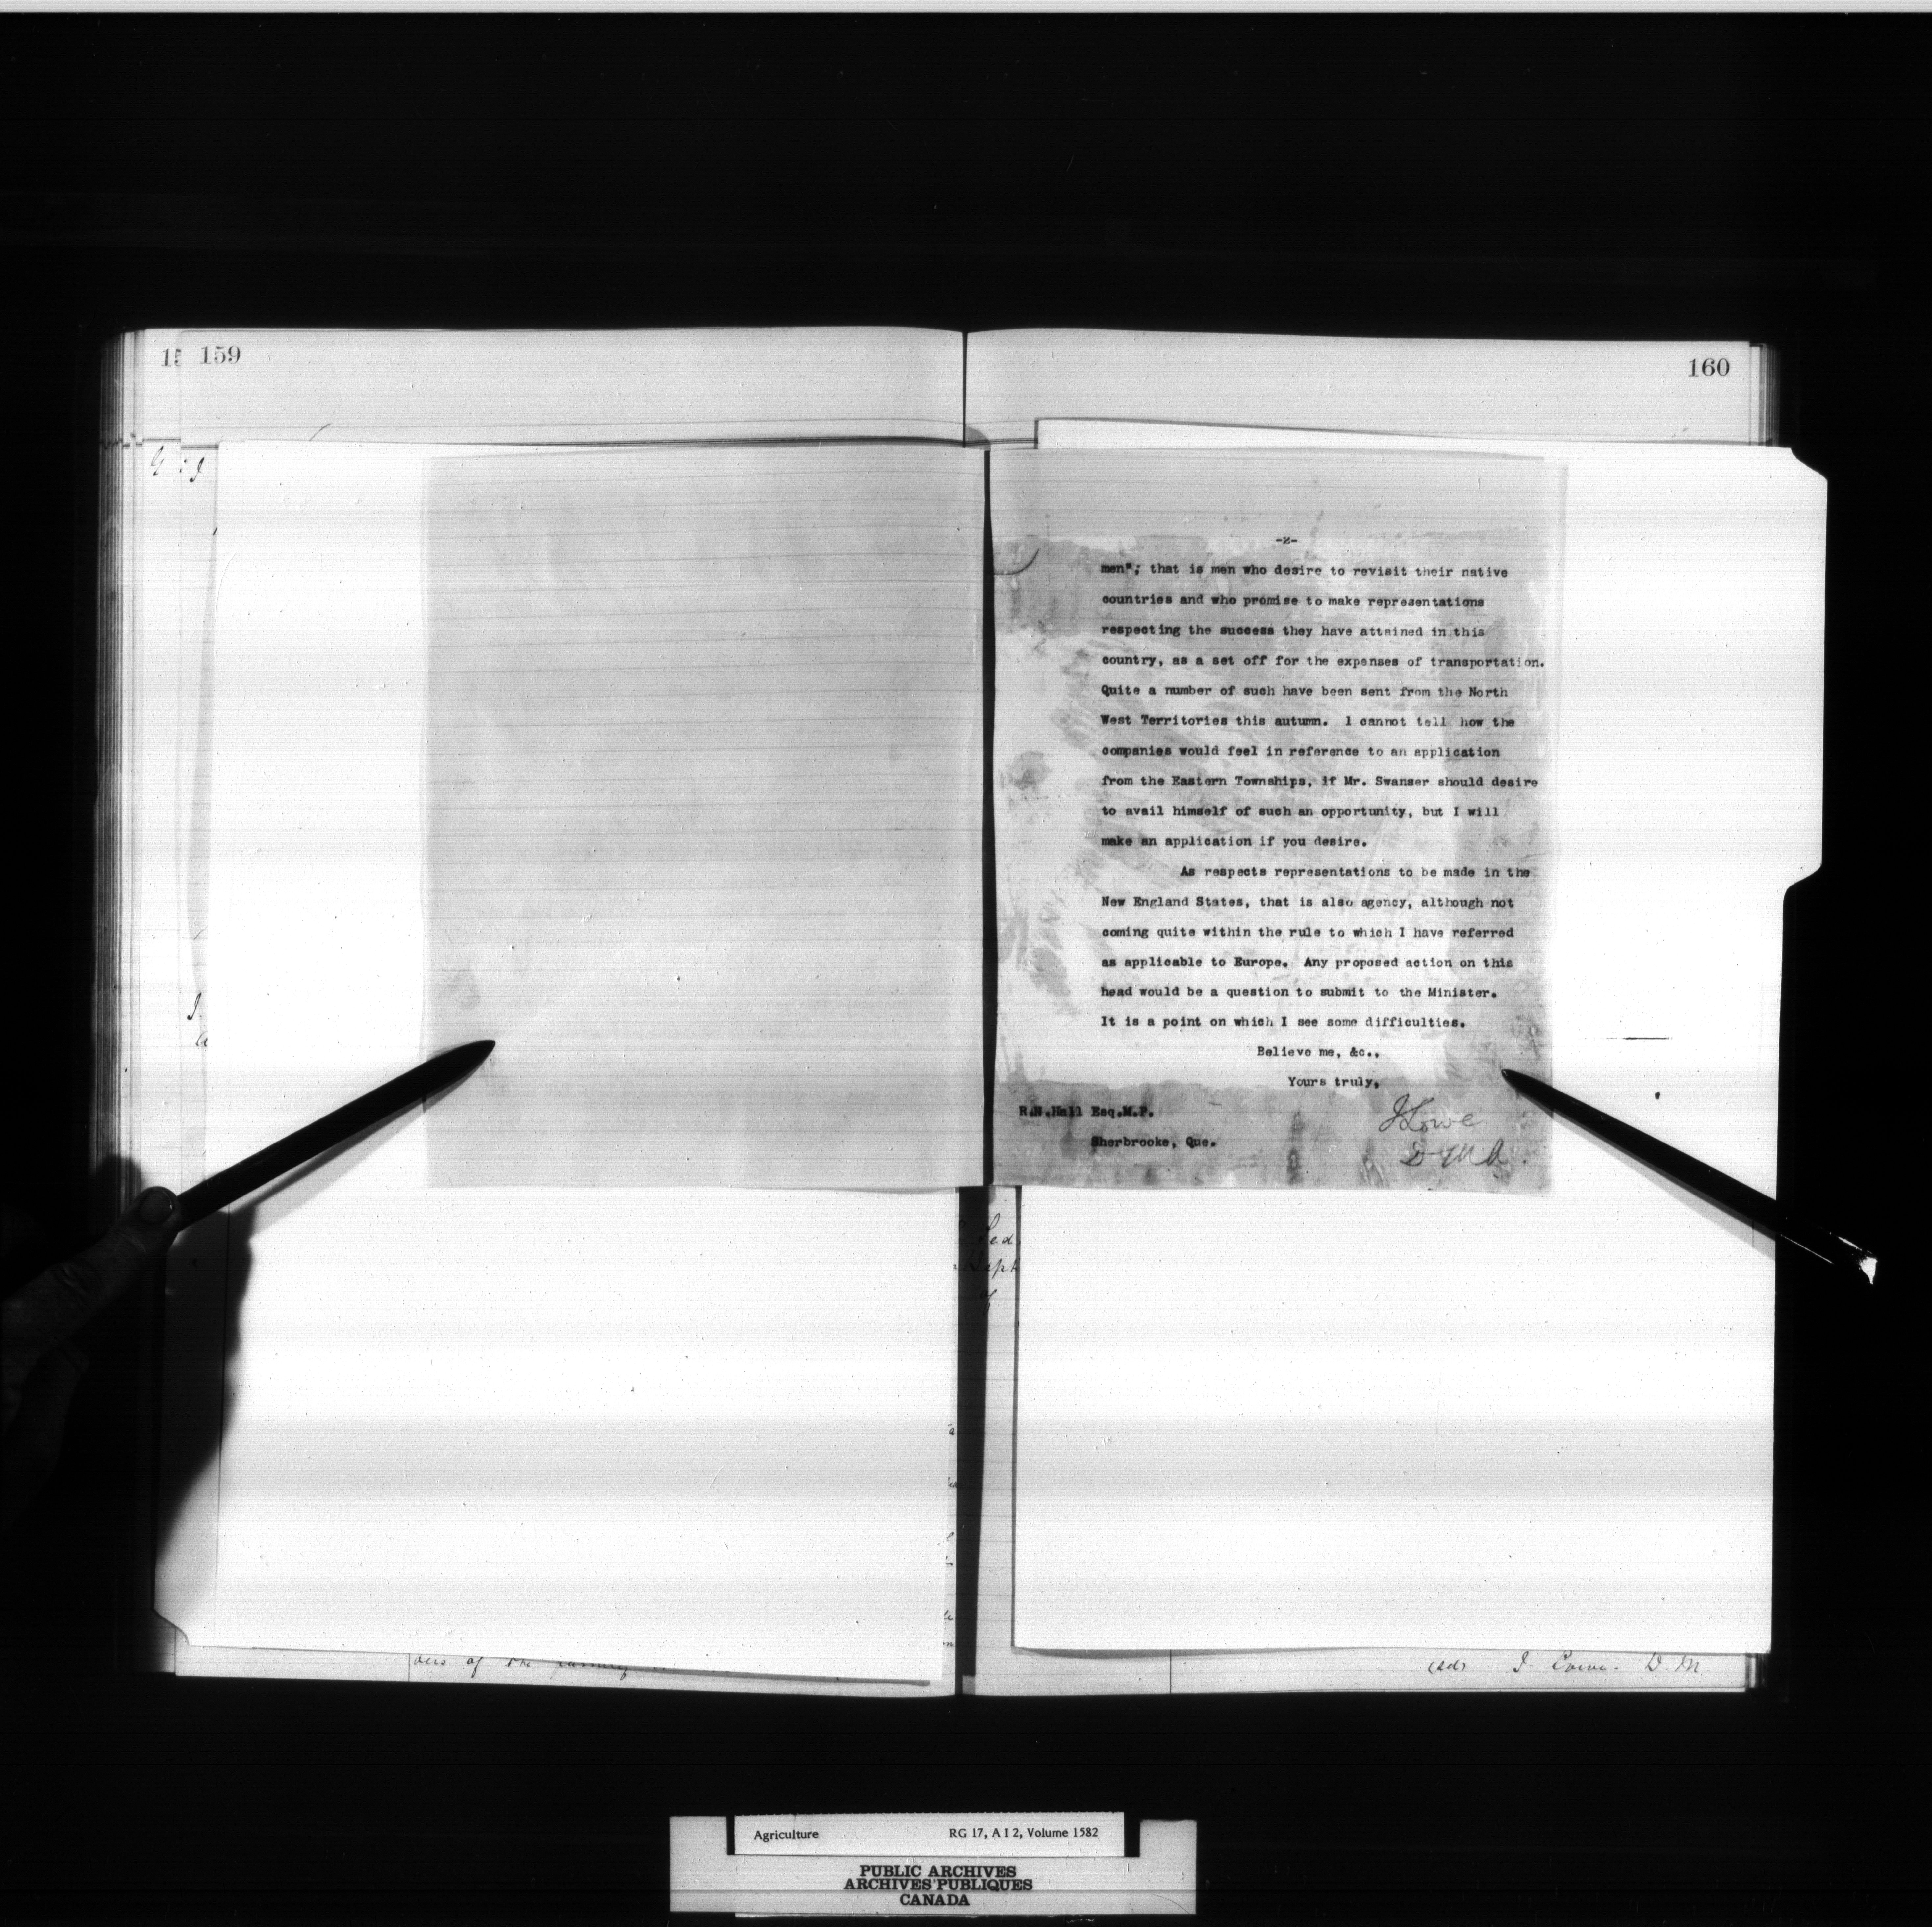 159
160
-2-
men"; that is men who desire to revisit their native
countries and who promise to make representations
respecting the success they have attained in this
country, as a set off for the expenses of transportation.
Quite a number of such have been sent from the North
West Territories this autumn. I cannot tell how the
companies would feel in reference to an application
from the Eastern Townships, if Mr. Swanser should desire
to avail himself of such an opportunity, but I will
make an application if you desire.
As respects representations to be made in the
New England States, that is also agency, although not
coming quite within the rule to which I have referred
as applicable to Europe. Any proposed action on this
head would be a question to submit to the Minister.
It is a point on which I see some difficulties.
Believe me, &c.,
Yours truly,
R.N.Hall Esq.M.P.
Sherbrooke, Que.
J Lowe
D M A.
Dept
of
of the
(sd) J. Lowe. D. M.
Agriculture RG 17, A I 2, Volume 1582
PUBLIC ARCHIVES
ARCHIVES PUBLIQUES
CANADA